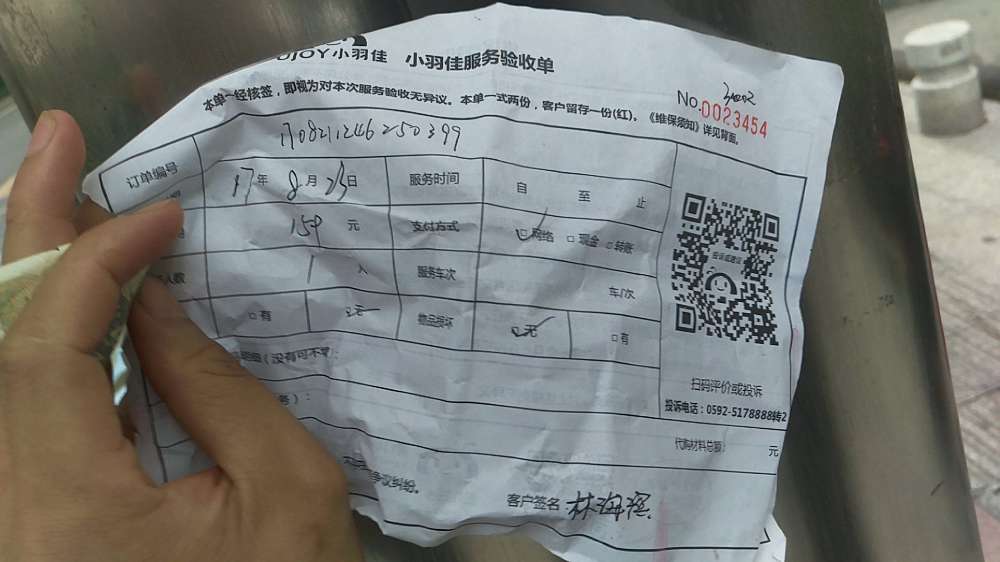 OJOY小羽佳 小羽佳服务验收单
本单一经核签，即视为对本次服务验收无异议。本单一式两份，客户留存一份(红)。《维保须知》详见背面。
No.0023454
订单编号 170821246250399
17年 8月 23日 服务时间 自 至 止
159 元 支付方式 ☑网络 □现金 □转账
人数 1 人 服务车次 车/次
□有 ☑无 物品损坏 ☑无 □有
投诉或建议
扫码评价或投诉
投诉电话：0592-5178888转2
（没有可不写）：
务）：
代购材料总额： 元
争议纠纷。
客户签名：林海滨